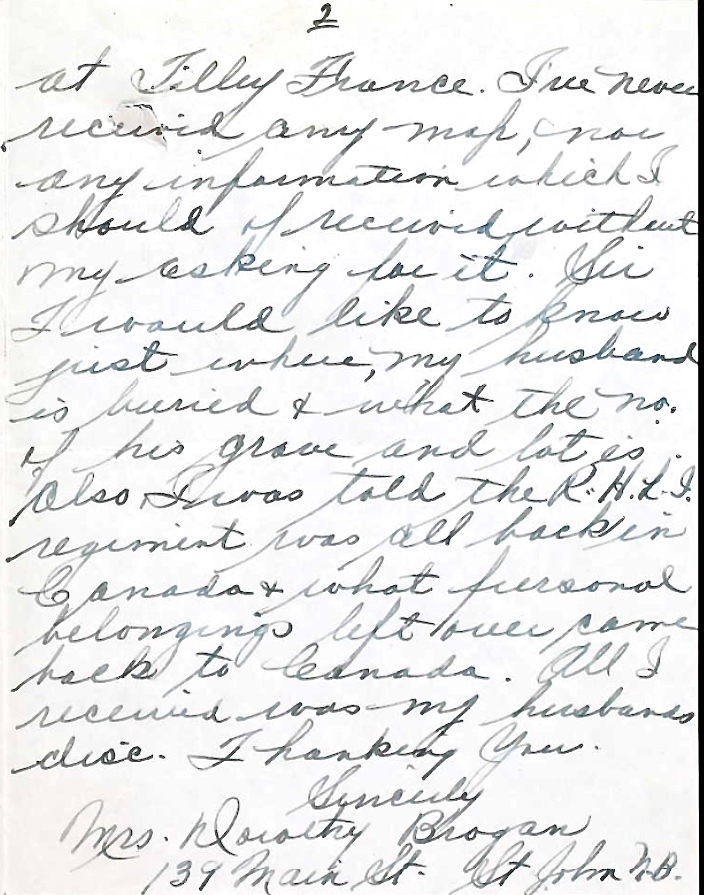 2
at Tilley France. I've never
received any map, nor
any information which I
should of received without
my asking for it. Sir
I would like to know
just where, my husband
is buried & what the no.
of his grave and lot is.
Also I was told the R.H.L.I.
regiment was all back in
Canada & what personal
belongings left over came
back to Canada. All I
received was my husbands
disc. Thanking You.
Sincerly
Mrs. Dorothy Brogan
139 Main St. St John N.B.